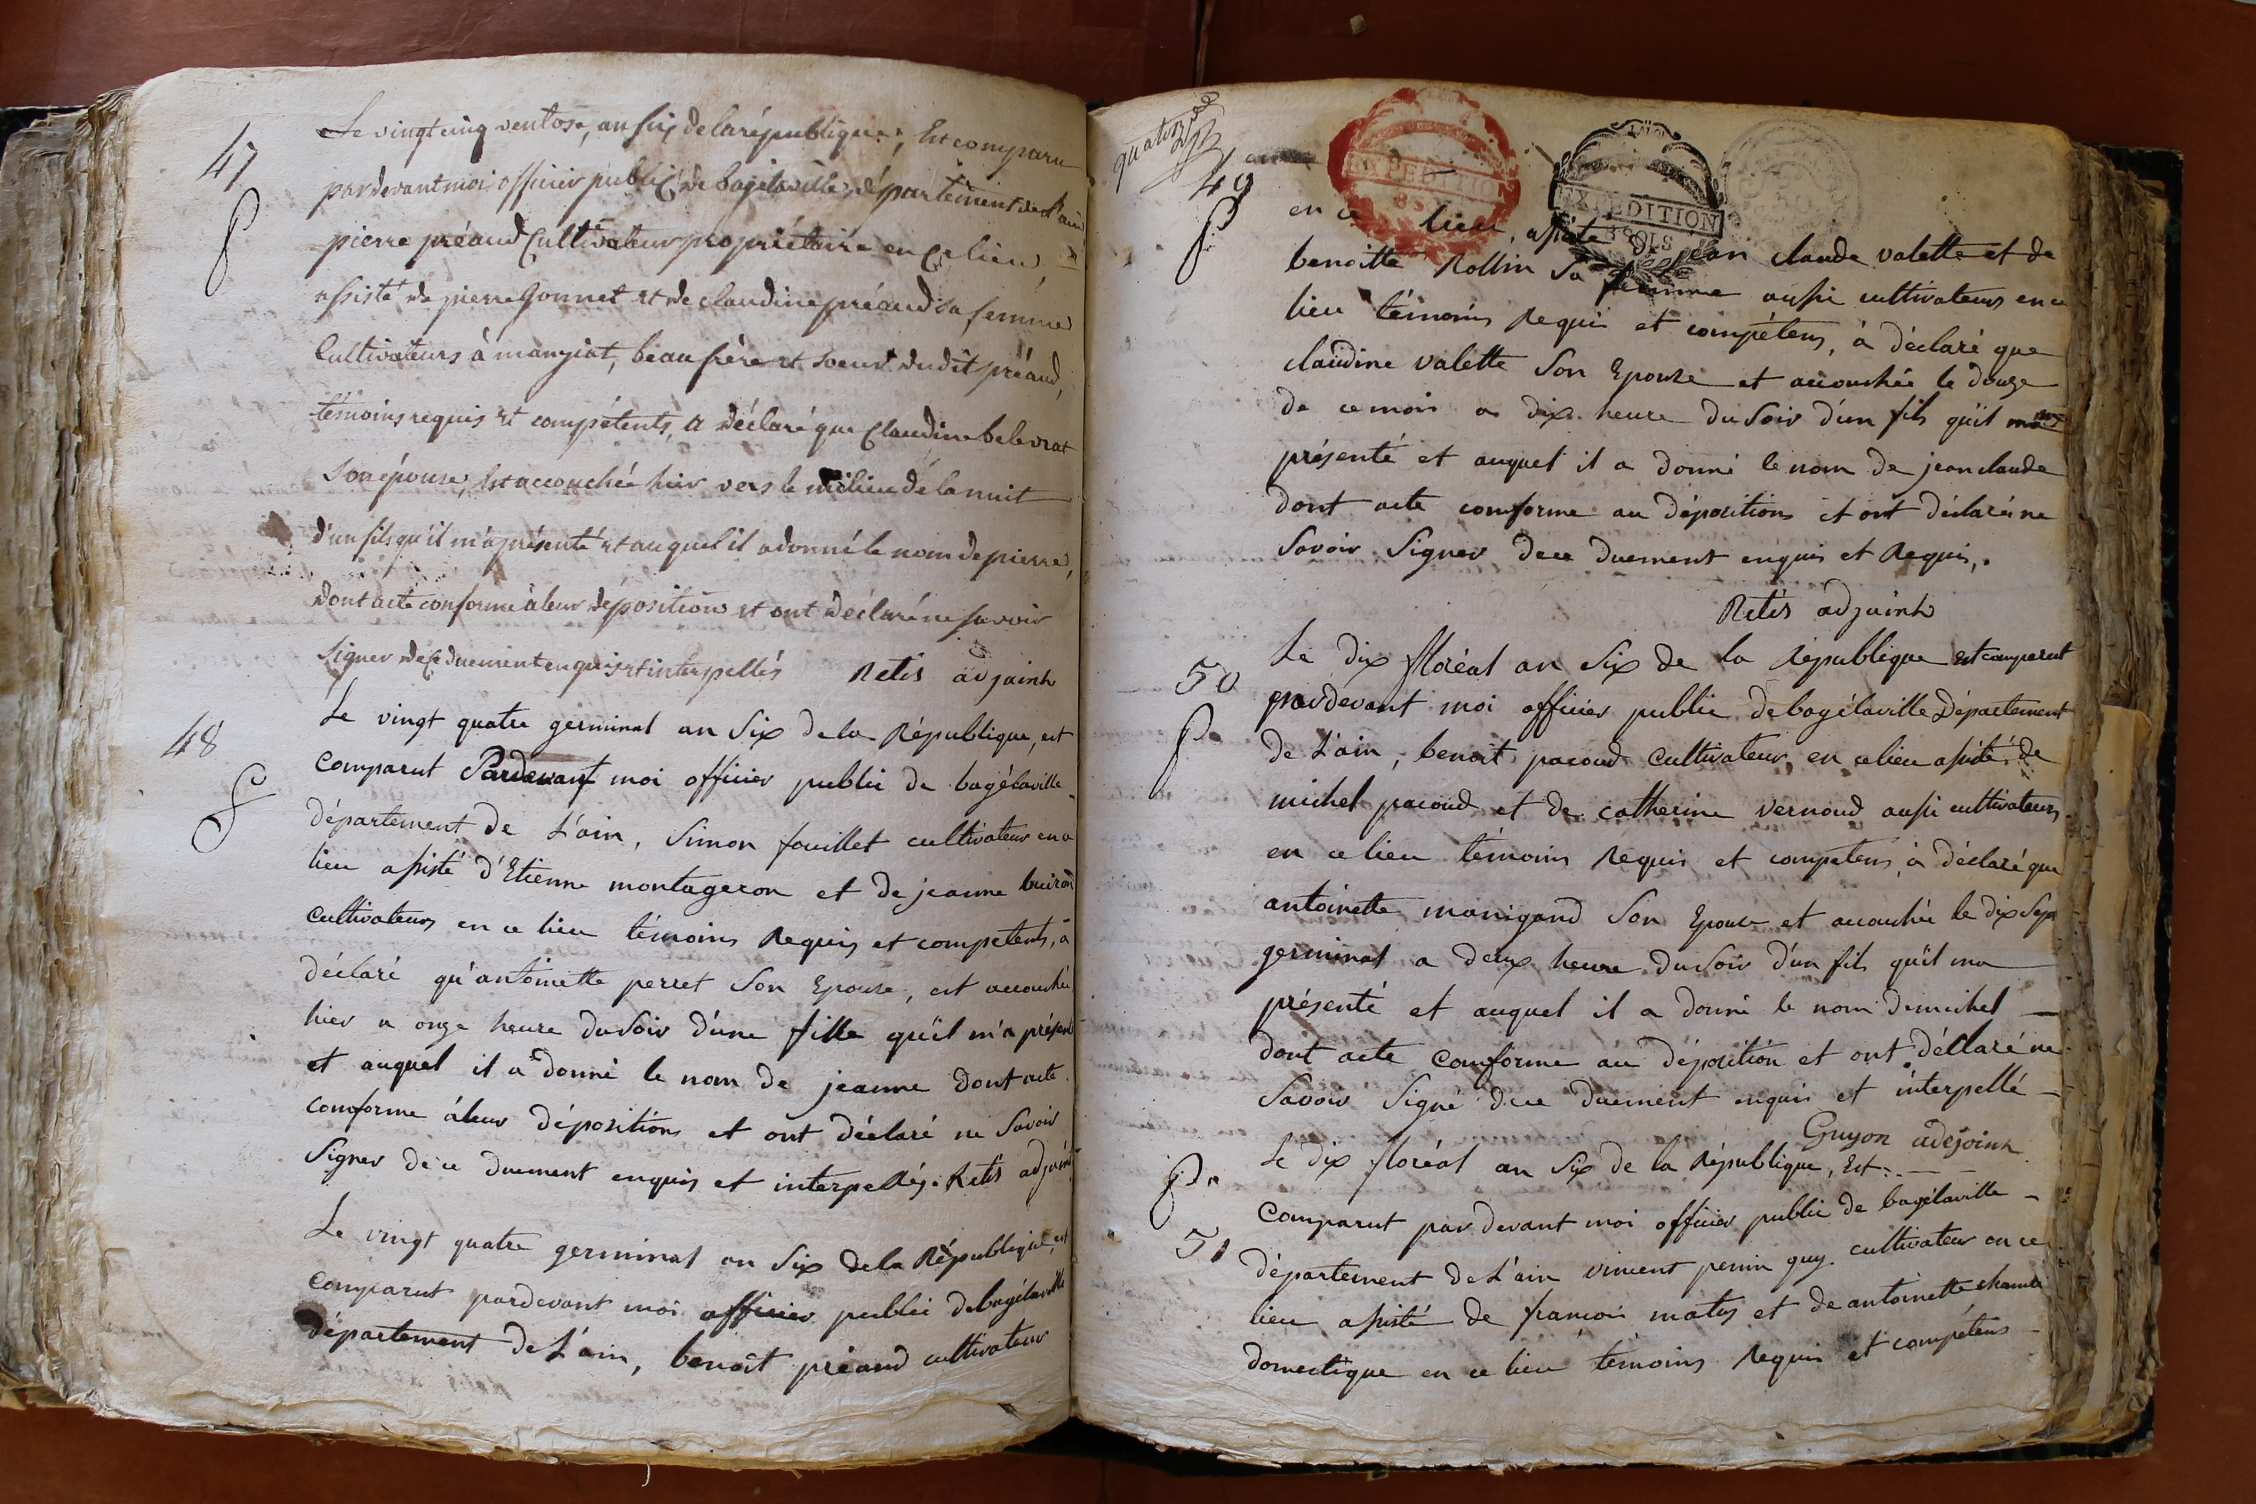 47
Le vingt cinq ventose, an six de la république, Est comparu
pardevant moi officier public de bagélaville département de l'ain
pierre préaud Cultivateur propriétaire en ce lieu,
assisté de pierre Gonnet et de claudine préaud sa femme
Cultivateurs à mangiat, beau frère et soeur dudit préaud,
témoins requis et compétents, a déclaré que Claudine belevrat
Son épouse, Est accouchée hier vers le milieu de la nuit
d'un fils qu'il m'a présenté et auquel il a donné le nom de pierre,
dont acte conforme à leur déposition et ont déclaré ne savoir
signer de ce duement enquis et interpellés Retis adjoint
48
Le vingt quatre germinal an Six de la République, est
comparut Pardevant moi officier public de bagélaville
département de L'ain, Simon fouillet cultivateur en ce
lieu assisté d'Etienne montageron et de jeanne buiron
cultivateurs en ce lieu témoins Requis et competents, à
déclaré qu'antoinette perret Son Epouse, est accouchée
hier a onze heure du Soir d'une fille qu'il m'a présenté
et auquel il a donné le nom de jeanne Dont acte
comforme à leur déposition et ont déclaré ne Savoir
Signer de ce duement enquis et interpellés. Retis adjoint
Le vingt quatre germinal an Six de la République, est
comparut pardevant moi officier public de bagélaville
département de L'ain, benoit préaud cultivateur
quatorze
49
EXPEDITION
EXPEDITION
en ce lieu, assisté de jean claude valette et de
benoitte Rollin Sa femme aussi cultivateurs en ce
lieu témoins Requis et compétens, à déclaré que
claudine valette Son Epouse et accouchée le douze
de ce mois a dix heure du Soir d'un fils qu'il m'a
présenté et auquel il a donné le nom de jean claude
dont acte comforme au dépositions et ont déclaré ne
Savoir Signer de ce duement enquis et Requis,.
Retis adjoint
50
Le Dix floréal an Six de la République est comparut
pardevant moi officier public de bagélaville Département
de L'ain, benoit pacoud cultivateur en ce lieu assisté de
michel pacoud et de catherine vernoud aussi cultivateurs
en ce lieu témoins Requis et competens, à déclaré que
antoinette manigand Son Epouse et accouchée le dix Sept
germinal a deux heure du Soir d'un fils qu'il ma
présenté et auquel il a donné le nom de michel
dont acte comforme au déposition et ont déclaré ne
Savoir Signé de ce duement enquis et interpellé
Guyon adejoint
Le dix floréal an Six de la République, Est
51
comparut par devant moi officier public de bagélaville
département de L'ain vincent penin guy cultivateur en ce
lieu assisté de francois matys et de antoinette
domestique en ce lieu témoins Requis et compétens